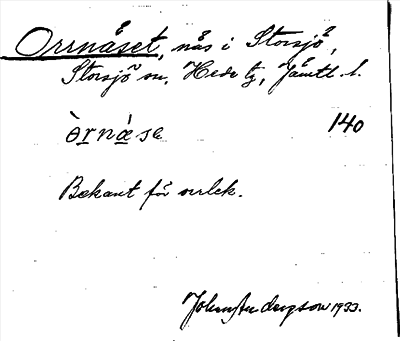 Orrnåset, näs i Storsjö,
Storsjö sn, Hede tg, Jämtl. l.
òrnà̀se 140
Bekant för orrlek.
John Andersson 1933.